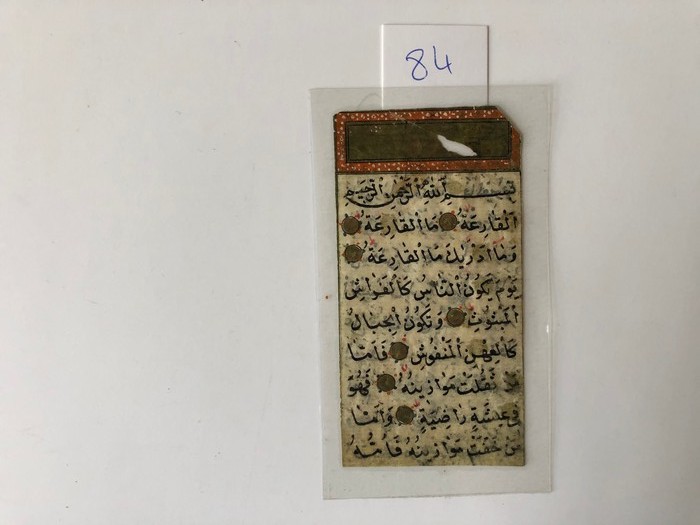 84
بِسْمِ اللهِ الرَّحْمٰنِ الرَّحِيمِ
اَلْقَارِعَةُ مَا الْقَارِعَةُ
وَمَا اَدْرٰيكَ مَا الْقَارِعَةُ
يَوْمَ يَكُونُ النَّاسُ كَالْفَرَاشِ
الْمَبْثُوثِ وَتَكُونُ الْجِبَالُ
كَالْعِهْنِ الْمَنْفُوشِ فَاَمَّا
مَنْ ثَقُلَتْ مَوَازِينُهُ فَهُوَ
فِى عِيشَةٍ رَاضِيَةٍ وَاَمَّا
مَنْ خَفَّتْ مَوَازِينُهُ فَاُمُّهُ